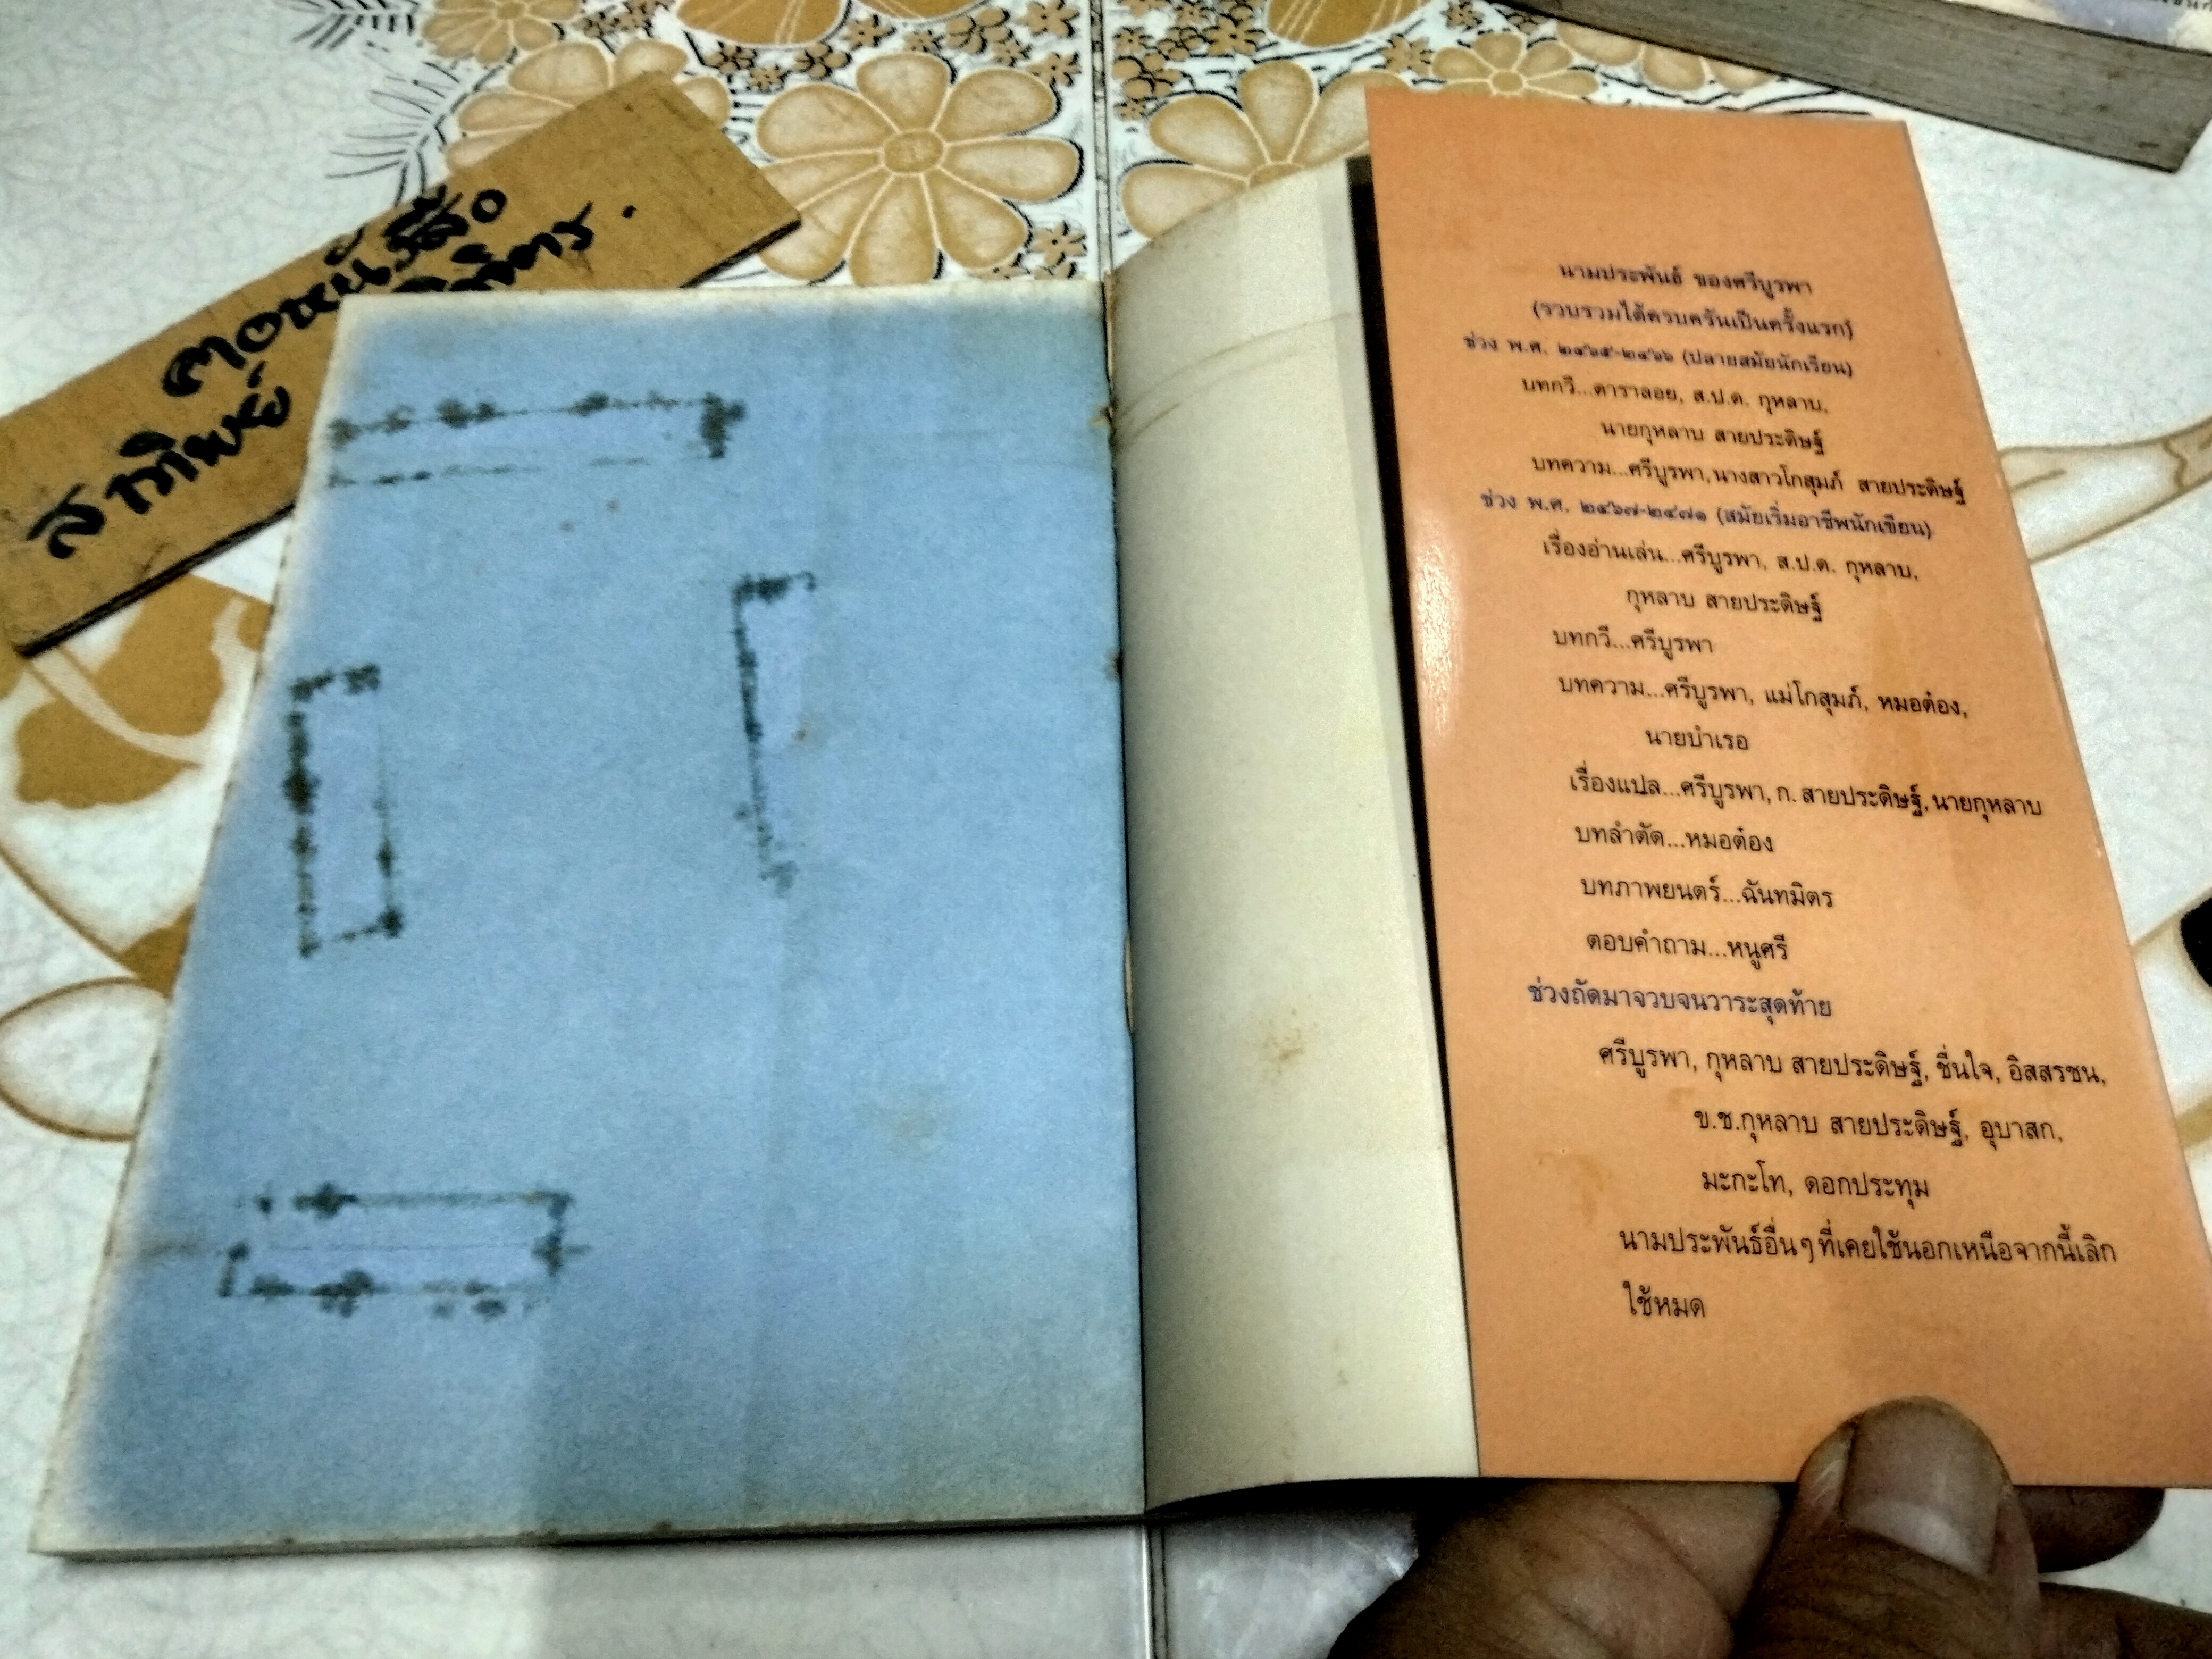 ตอหนังสือ
สาทิพย์
นามประพันธ์ ของศรีบูรพา
(รวบรวมได้ครบครันเป็นครั้งแรก)
ช่วง พ.ศ. ๒๔๖๕-๒๔๖๖ (ปลายสมัยนักเรียน)
บทกวี...ดาราลอย, ส.ป.ด. กุหลาบ,
นายกุหลาบ สายประดิษฐ์
บทความ...ศรีบูรพา,นางสาวโกสุมภ์ สายประดิษฐ์
ช่วง พ.ศ. ๒๔๖๗-๒๔๗๑ (สมัยเริ่มอาชีพนักเขียน)
เรื่องอ่านเล่น...ศรีบูรพา, ส.ป.ด. กุหลาบ,
กุหลาบ สายประดิษฐ์
บทกวี...ศรีบูรพา
บทความ...ศรีบูรพา, แม่โกสุมภ์, หมอต๋อง,
นายบำเรอ
เรื่องแปล...ศรีบูรพา, ก. สายประดิษฐ์, นายกุหลาบ
บทลำตัด...หมอต๋อง
บทภาพยนตร์...ฉันทมิตร
ตอบคำถาม...หนูศรี
ช่วงถัดมาจวบจนวาระสุดท้าย
ศรีบูรพา, กุหลาบ สายประดิษฐ์, ชื่นใจ, อิสสรชน,
ข.ช.กุหลาบ สายประดิษฐ์, อุบาสก,
มะกะโท, ดอกประทุม
นามประพันธ์อื่นๆที่เคยใช้นอกเหนือจากนี้เลิก
ใช้หมด